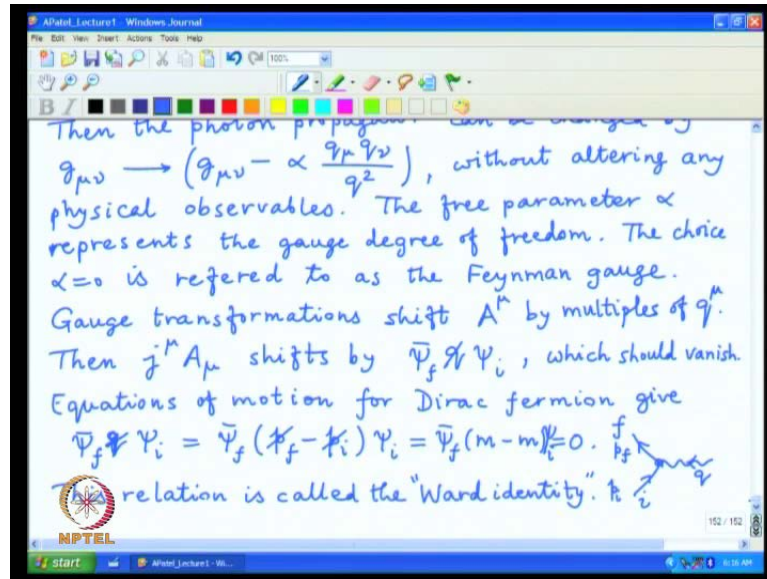 APatel_Lecture1 - Windows Journal
File Edit View Insert Actions Tools Help
100%
B I
Then the photon can be changed by
g_{μν} → (g_{μν} - α q_μ q_ν / q²), without altering any
physical observables. The free parameter α
represents the gauge degree of freedom. The choice
α=0 is refered to as the Feynman gauge.
Gauge transformations shift A^μ by multiples of q^μ.
Then j^μ A_μ shifts by ψ̄_f q̸ ψ_i, which should vanish.
Equations of motion for Dirac fermion give
ψ̄_f q̸ ψ_i = ψ̄_f (p̸_f - p̸_i) ψ_i = ψ̄_f (m - m)ψ_i = 0. f
p_f
q
This relation is called the "Ward identity". p_i i
NPTEL
152 / 152
start
APatel_Lecture1 - Wi...
8:16 AM